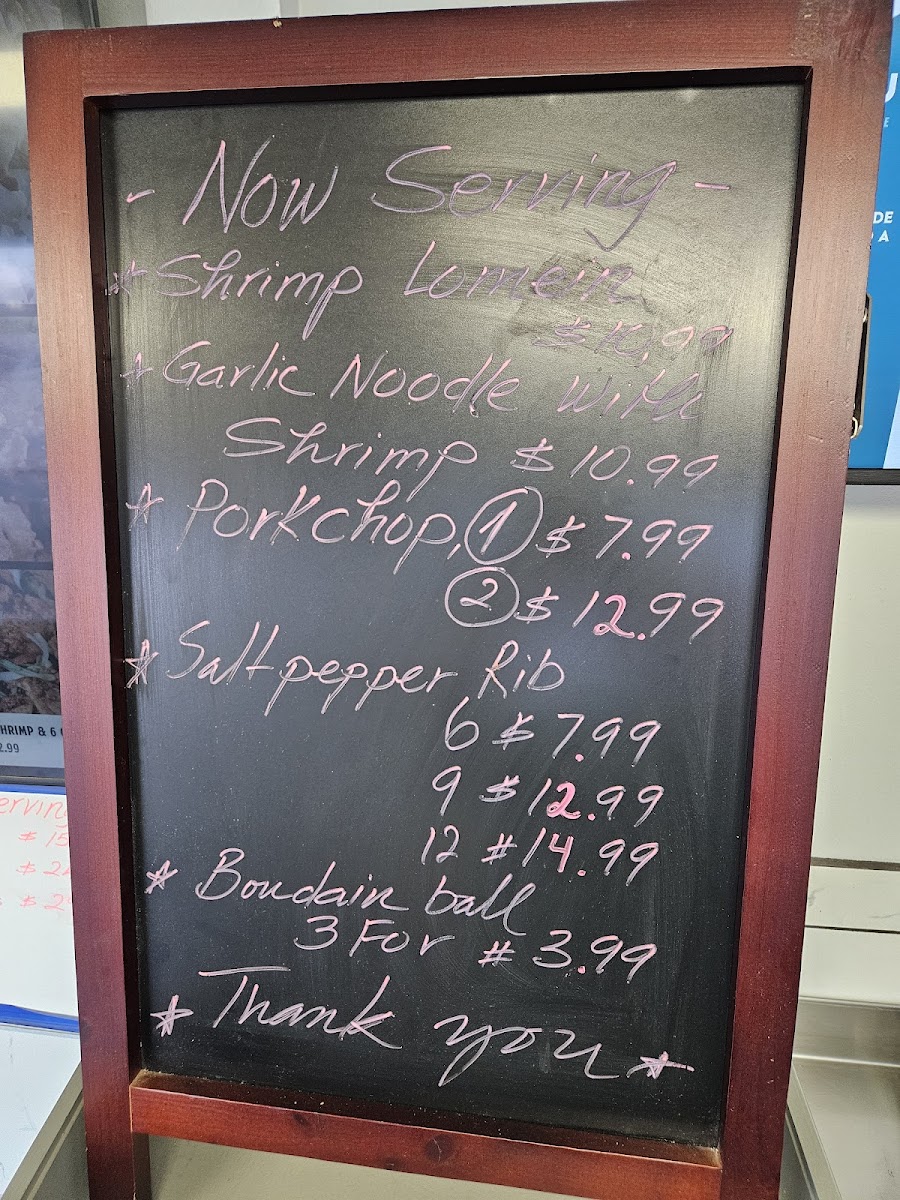 - Now Serving -
* Shrimp Lomein
$10.99
* Garlic Noodle with
Shrimp $10.99
* Porkchop, 1 $7.99
2 $12.99
* Salt pepper Rib
6 $7.99
9 $12.99
12 #14.99
* Boudain ball
3 For #3.99
* Thank you *
HRIMP & 6
2.99
erving
$ 15
$ 2
$ 2
DE
A